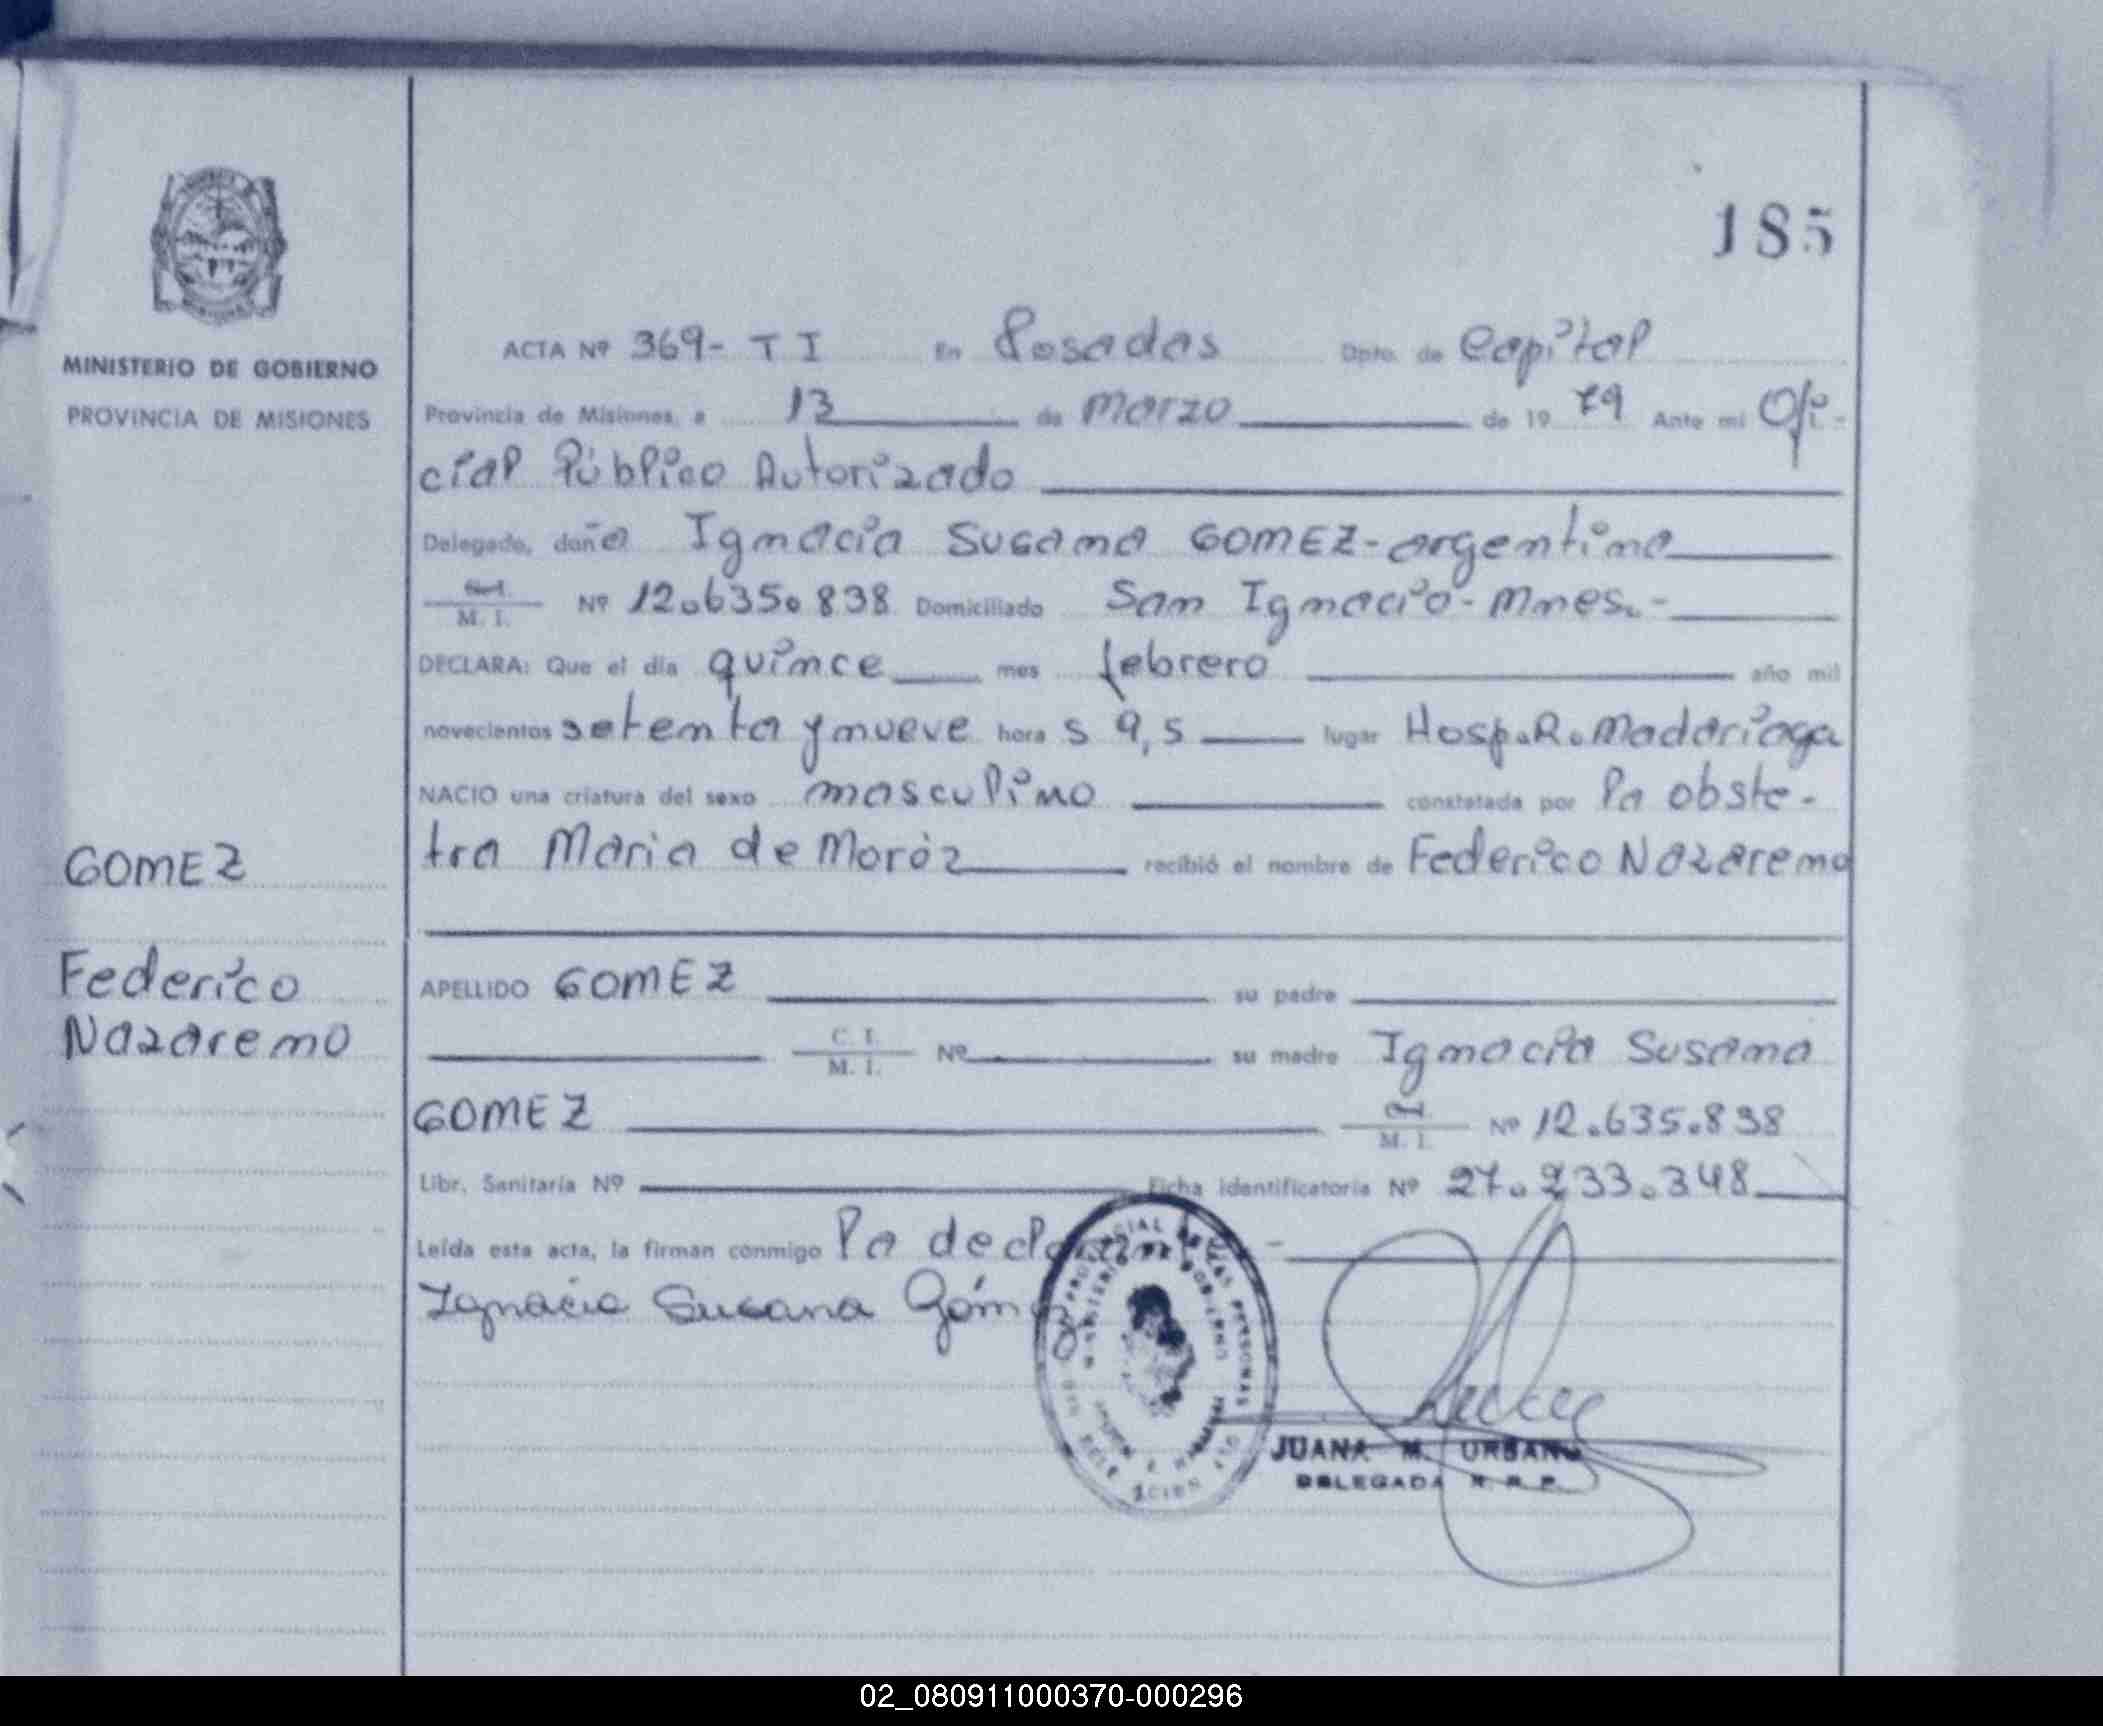 185
MINISTERIO DE GOBIERNO
PROVINCIA DE MISIONES
GOMEZ
Federico
Nazareno
ACTA Nº 369- T I En Posadas Dpto. de Capital
Provincia de Misiones, a 13 de Marzo de 19 79 Ante mi Ofi-
cial Público Autorizado
Delegado, doña Ignacia Susana GOMEZ-argentina
M. I. Nº 12.635.838 Domiciliado San Ignacio-Mnes.-
DECLARA: Que el día quince mes febrero año mil
novecientos setenta y nueve hora s 9,5 lugar Hosp.R.Madariaga
NACIO una criatura del sexo masculino constatada por la obste-
tra Maria de Moròz recibió el nombre de Federico Nazareno
APELLIDO GOMEZ su padre
C. I. M. I. Nº su madre Ignacia Susana
GOMEZ M. I. Nº 12.635.838
Libr. Sanitaria Nº Ficha identificatoria Nº 27.233.348
Leída esta acta, la firman conmigo la declarante.-
Ignacia Susana Gómez
JUANA M. URBANO
DELEGADA R. R. P.
02_080911000370-000296